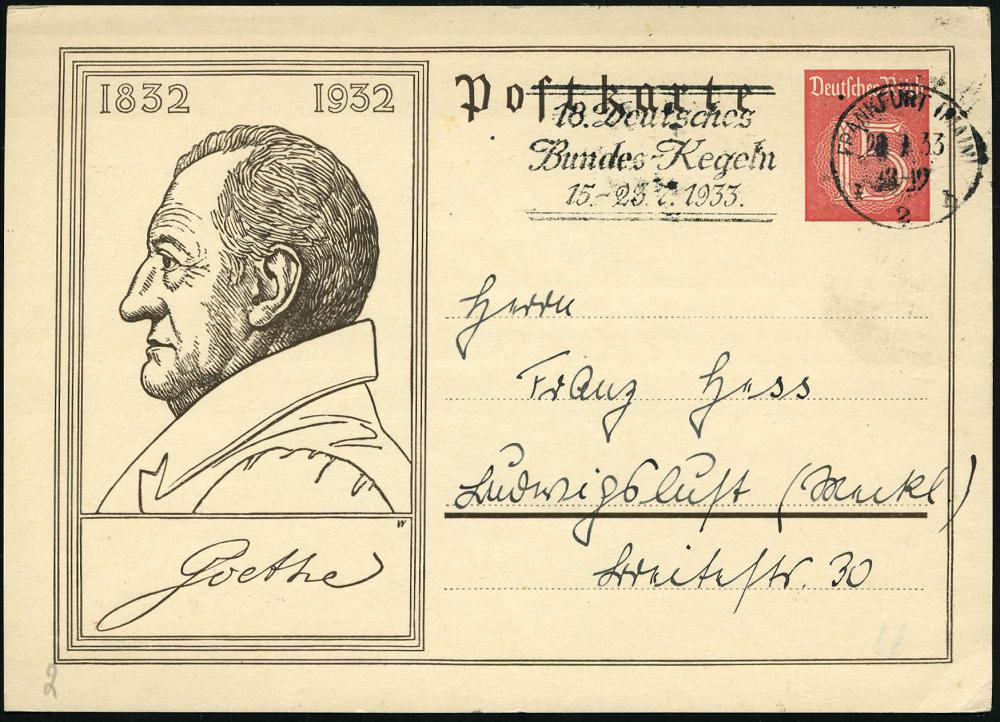 1832 1932
Postkarte
18. Deutsches
Bundes-Kegeln
15.-23.7.1933.
Deutsches Reich
5
FRANKFURT (MAIN)
33
2
Herrn
Franz Hess
Ludwigslust (Meckl.)
Breitestr. 30
W
Goethe
2